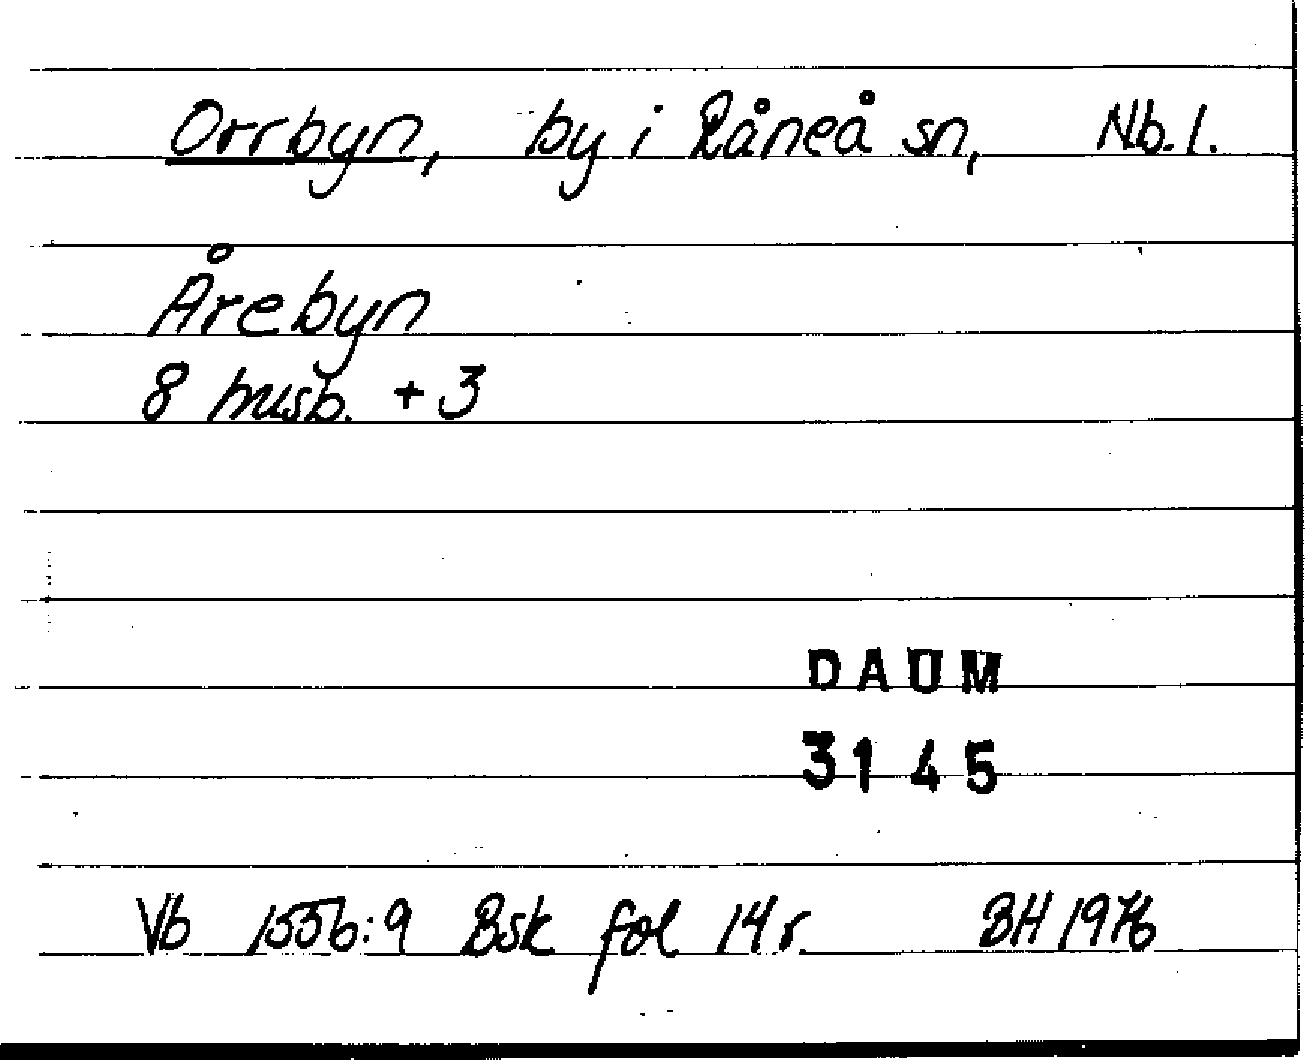 Orrbyn, by i Råneå sn, Nb.l.
Årebyn
8 husb. + 3
DAUM
3145
Vb 1556:9 Bsk fol 14 r. BH 1976